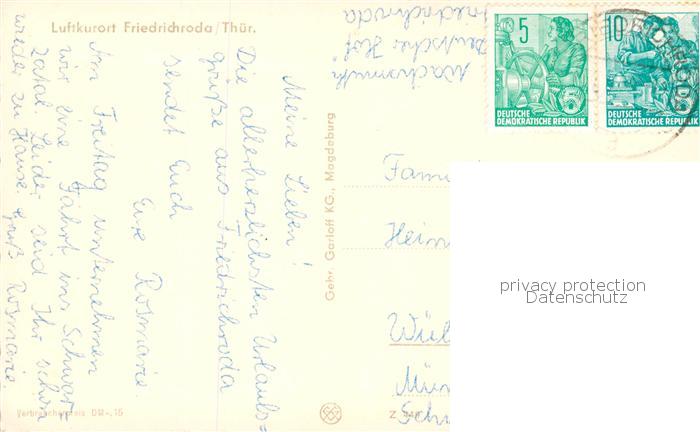 Luftkurort Friedrichroda/Thür.
Meine Lieben!
Die allerherzlichsten Urlaubs-
grüße aus Friedrichroda
sendet Euch
Eure Rosmarie.
Am Freitag unternehmen
wir eine Fahrt ins Schwarz-
zatal. Leider seid Ihr schon
wieder zu Hause. Gruß Rosmarie.
Verbraucherpreis DM -,15
Gebr. Garloff KG., Magdeburg
Deutscher Hof
Friedrichroda
5
DEUTSCHE
DEMOKRATISCHE REPUBLIK
10
DEUTSCHE
DEMOKRATISCHE REPUBLIK
Fami
Hein
Wül
Mün
Schu
privacy protection
Datenschutz